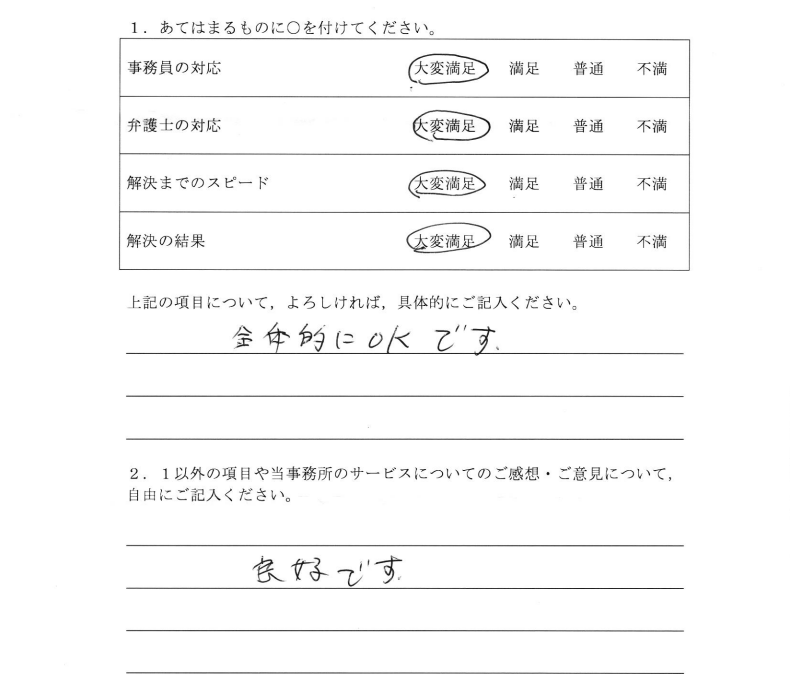 １．あてはまるものに○を付けてください。
事務員の対応 大変満足 満足 普通 不満
弁護士の対応 大変満足 満足 普通 不満
解決までのスピード 大変満足 満足 普通 不満
解決の結果 大変満足 満足 普通 不満
上記の項目について，よろしければ，具体的にご記入ください。
全体的にOKです.
２．１以外の項目や当事務所のサービスについてのご感想・ご意見について，
自由にご記入ください。
良好です.